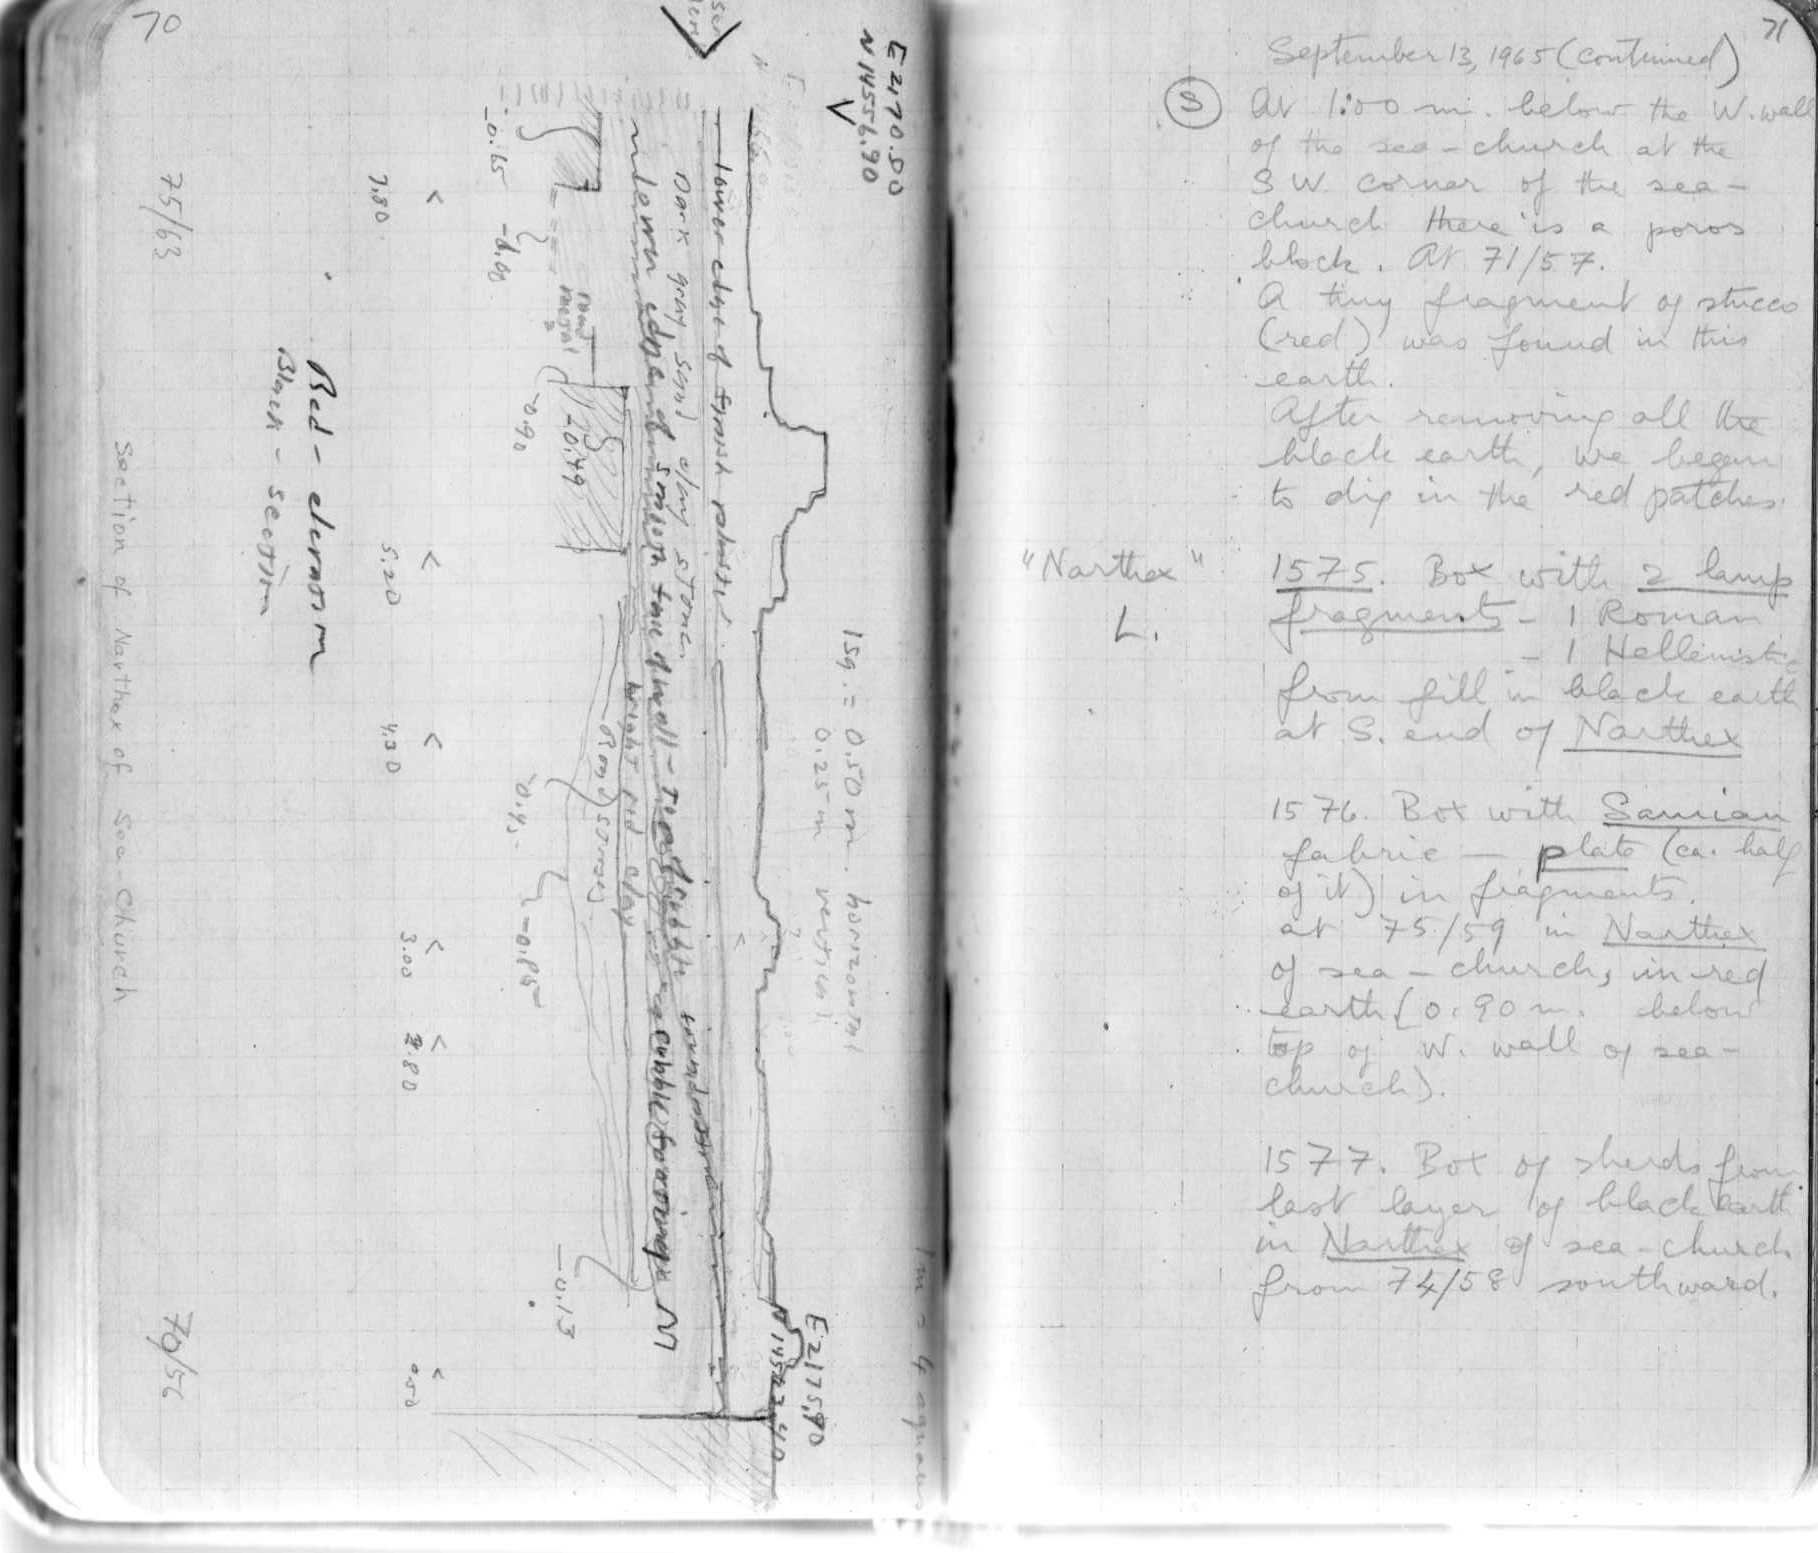 70
E 2170.50
N 14556.90
1 sq. = 0.50 m. horizontal
0.25 m vertical
1 m = 4 squares
E 2175.90
lower edge of finish plaster
Dark gray, sand clay stone.
lower edge of smooth face of wall
bright red clay
Road surfaces
road
metal
-0.65
-0.49
-0.90
-0.45
-0.85
-0.13
7.80
5.20
4.30
3.00
2.80
0.50
75/63
70/56
Red - elevation
Black - section
Section of Narthex of Sea-Church
71
September 13, 1965 (continued)
S At 1:00 m. below the W. wall
of the sea-church at the
SW. corner of the sea-
church there is a poros
block. At 71/57.
A tiny fragment of stucco
(red) was found in this
earth.
After removing all the
black earth, we began
to dig in the red patches.
"Narthex" 1575. Box with 2 lamp
L. fragments - 1 Roman
- 1 Hellenistic
from fill in black earth
at S. end of Narthex
1576. Box with Samian
fabric — plate (ca. half
of it) in fragments.
at 75/59 in Narthex
of sea-church, in red
earth (0.90 m. below
top of W. wall of sea-
church).
1577. Box of sherds from
last layer of black earth
in Narthex of sea-church
from 74/58 southward.